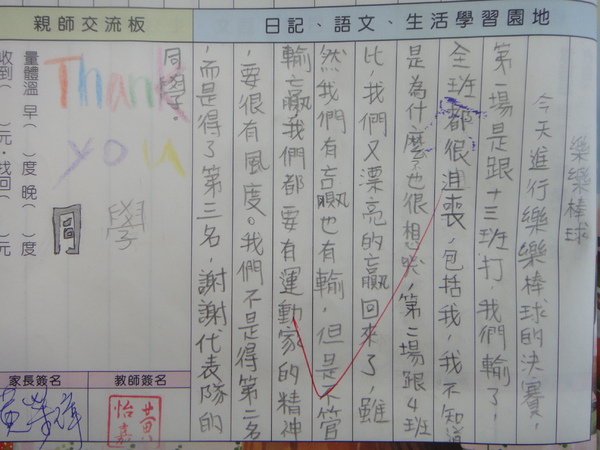 日記、語文、生活學習園地
樂樂棒球
今天進行樂樂棒球的決賽，
第一場是跟十三班打，我們輸了，
全班都很沮喪，包括我，我不知道
是為什麼？也很想哭，第二場跟4班
比，我們又漂亮的贏回來了，雖
然我們有贏也有輸，但是不管
輸贏我們都要有運動家的精神
，要很有風度。我們不是得第二名
，而是得了第三名，謝謝代表隊的
同學。
親師交流板
Thank
you
學
同
量體溫 早（ ）度 晚（ ）度
收到（ ）元，找回（ ）元
教師簽名
家長簽名
黃怡嘉